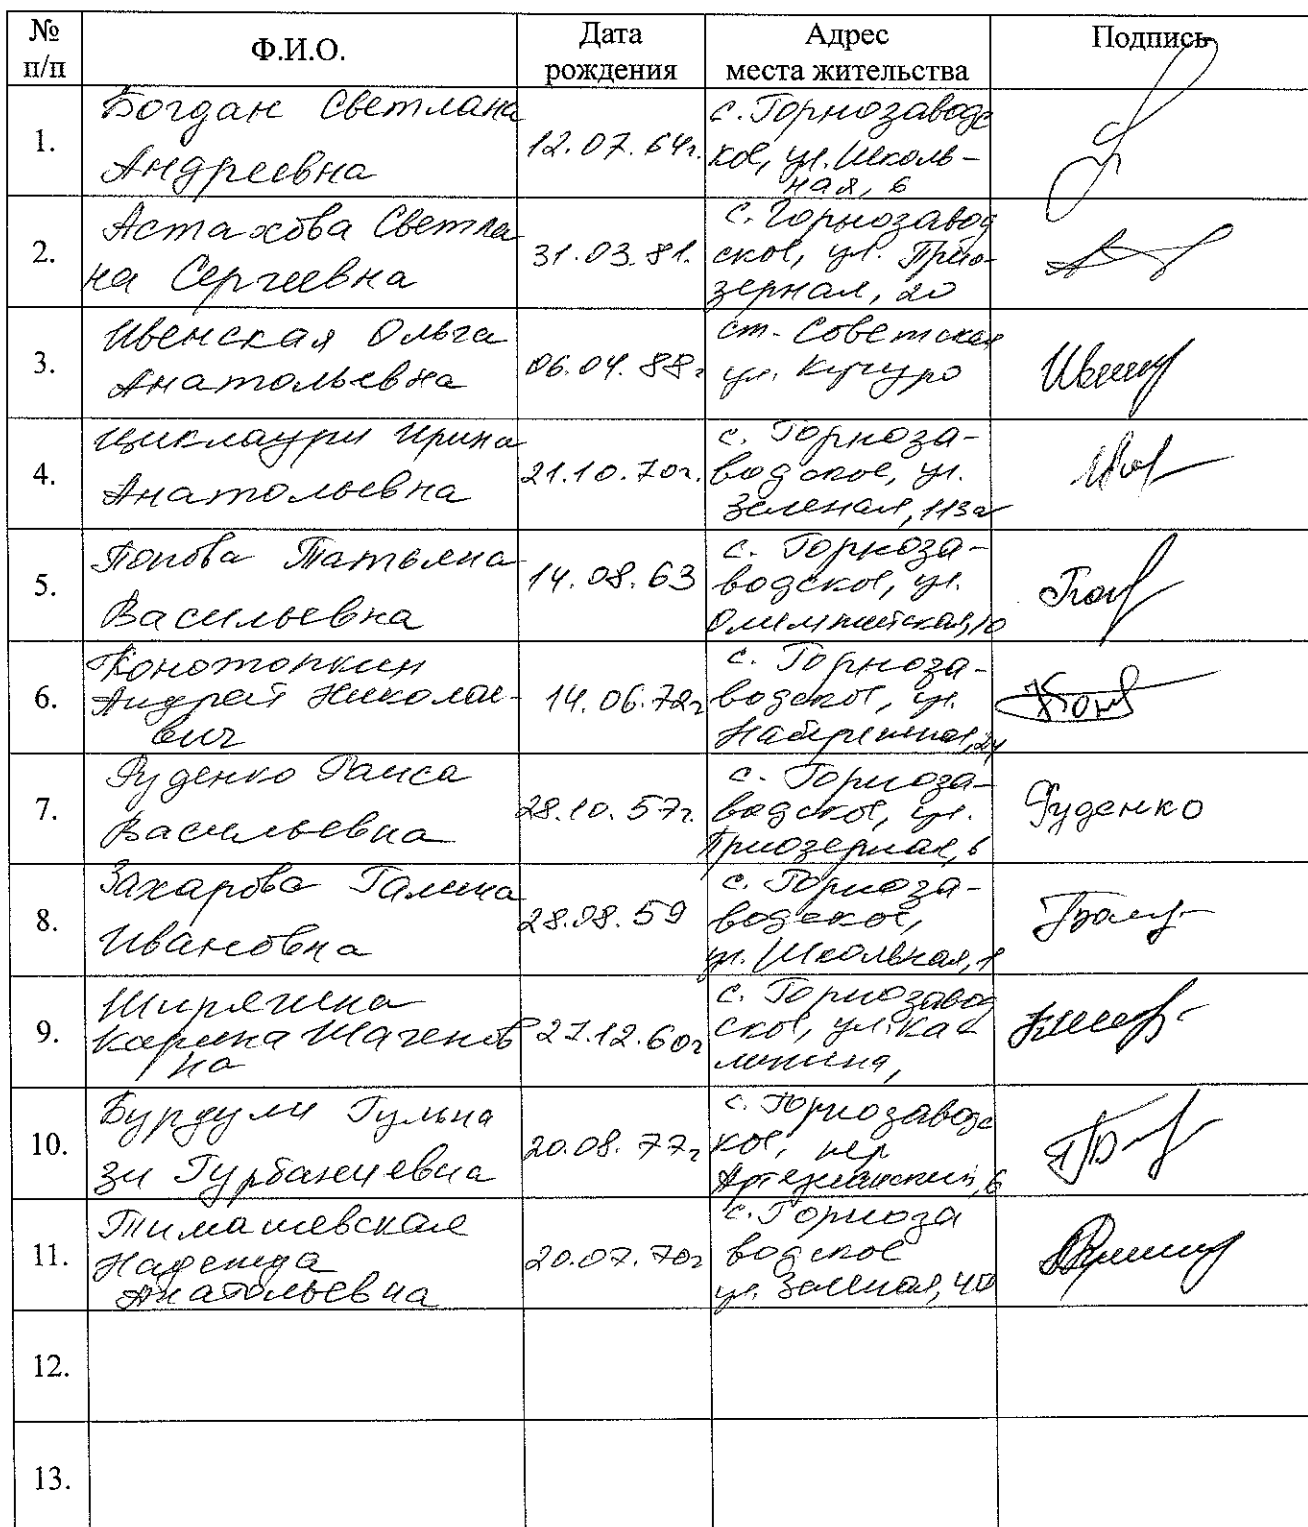 № п/п Ф.И.О. Дата рождения Адрес места жительства Подпись
1. Богдан Светлана Андреевна 12.07.64г. с. Горнозаводское, ул. Школьная, 6
2. Астахова Светлана Сергеевна 31.03.81. с. Горнозаводское, ул. Приозерная, 20
3. Ивенская Ольга Анатольевна 06.04.88г ст. Советская ул. Кучуро
4. Циклаури Ирина Анатольевна 21.10.70г. с. Горнозаводское, ул. Зеленая, 113а
5. Попова Татьяна Васильевна 14.08.63 с. Горнозаводское, ул. Олимпийская, 10
6. Конотопкин Андрей Николаевич 14.06.72г с. Горнозаводское, ул. Набережная, 24
7. Руденко Раиса Васильевна 28.10.57г. с. Горнозаводское, ул. Приозерная, 6 Руденко
8. Захарова Галина Ивановна 28.08.59 с. Горнозаводское, ул. Школьная, 1
9. Ширягина Карина 27.12.60г с. Горнозаводское, ул. Калинина,
10. Бурдули Гульнази 20.08.77г с. Горнозаводское, пер Артезианский, 6
11. Тимашевская Надежда Анатольевна 20.07.70г с. Горнозаводское ул. Зеленая,
12.
13.